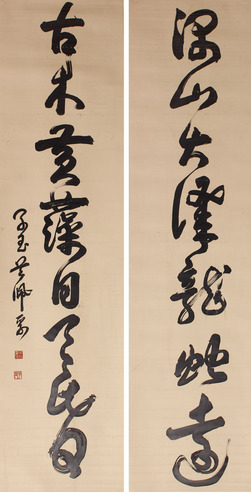 深山大澤龍蛇遠
古木蒼藤日月昏
子玉吳佩孚